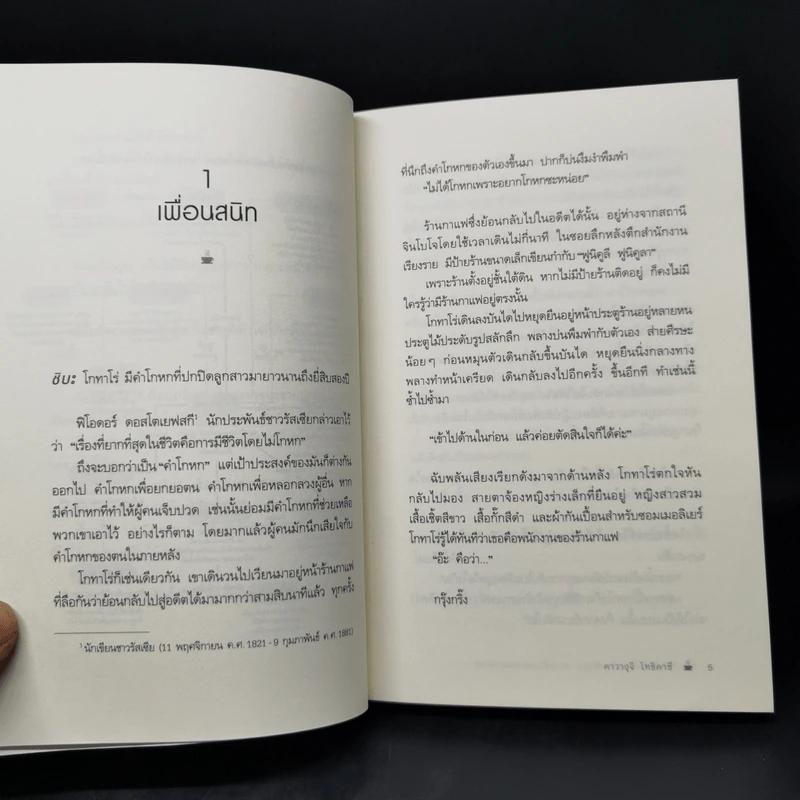 1
เพื่อนสนิท
ชิบะ โกทาโร่ มีคำโกหกที่ปกปิดลูกสาวมายาวนานถึงยี่สิบสองปี
ฟิโอดอร์ ดอสโตเยฟสกี¹ นักประพันธ์ชาวรัสเซียกล่าวเอาไว้
ว่า “เรื่องที่ยากที่สุดในชีวิตคือการมีชีวิตโดยไม่โกหก”
ถึงจะบอกว่าเป็น “คำโกหก” แต่เป้าประสงค์ของมันก็ต่างกัน
ออกไป คำโกหกเพื่อยกยอตน คำโกหกเพื่อหลอกลวงผู้อื่น หาก
มีคำโกหกที่ทำให้ผู้คนเจ็บปวด เช่นนั้นย่อมมีคำโกหกที่ช่วยเหลือ
พวกเขาเอาไว้ อย่างไรก็ตาม โดยมากแล้วผู้คนมักนึกเสียใจกับ
คำโกหกของตนในภายหลัง
โกทาโร่ก็เช่นเดียวกัน เขาเดินวนไปเวียนมาอยู่หน้าร้านกาแฟ
ที่ลือกันว่าย้อนกลับไปสู่อดีตได้มามากกว่าสามสิบนาทีแล้ว ทุกครั้ง
¹ นักเขียนชาวรัสเซีย (11 พฤศจิกายน ค.ศ. 1821 - 9 กุมภาพันธ์ ค.ศ. 1881)
ที่นึกถึงคำโกหกของตัวเองขึ้นมา ปากก็บ่นงึมงำพึมพำ
“ไม่ได้โกหกเพราะอยากโกหกซะหน่อย”
ร้านกาแฟซึ่งย้อนกลับไปในอดีตได้นั้น อยู่ห่างจากสถานี
จินโบโจโดยใช้เวลาเดินไม่กี่นาที ในซอยลึกหลังตึกสำนักงาน
เรียงราย มีป้ายร้านขนาดเล็กเขียนกำกับ “ฟูนิคูลี ฟูนิคูลา”
เพราะร้านตั้งอยู่ชั้นใต้ดิน หากไม่มีป้ายร้านติดอยู่ ก็คงไม่มี
ใครรู้ว่ามีร้านกาแฟอยู่ตรงนั้น
โกทาโร่เดินลงบันไดไปหยุดยืนอยู่หน้าประตูร้านอยู่หลายหน
ประตูไม้ประดับรูปสลักลึก พลางบ่นพึมพำกับตัวเอง ส่ายศีรษะ
น้อยๆ ก่อนหมุนตัวเดินกลับขึ้นบันได หยุดยืนนิ่งกลางทาง
พลางทำหน้าเครียด เดินกลับลงไปอีกครั้ง ขึ้นอีกที ทำเช่นนี้
ซ้ำไปซ้ำมา
“เข้าไปด้านในก่อน แล้วค่อยตัดสินใจก็ได้ค่ะ”
ฉับพลันเสียงเรียกดังมาจากด้านหลัง โกทาโร่ตกใจหัน
กลับไปมอง สายตาจ้องหญิงร่างเล็กที่ยืนอยู่ หญิงสาวสวม
เสื้อเชิ้ตสีขาว เสื้อกั๊กสีดำ และผ้ากันเปื้อนสำหรับซอมเมอลิเยร์
โกทาโร่รู้ได้ทันทีว่าเธอคือพนักงานของร้านกาแฟ
“อ๊ะ คือว่า...”
กรุ๊งกริ๊ง
คาวางุจิ โทชิคาซึ 5